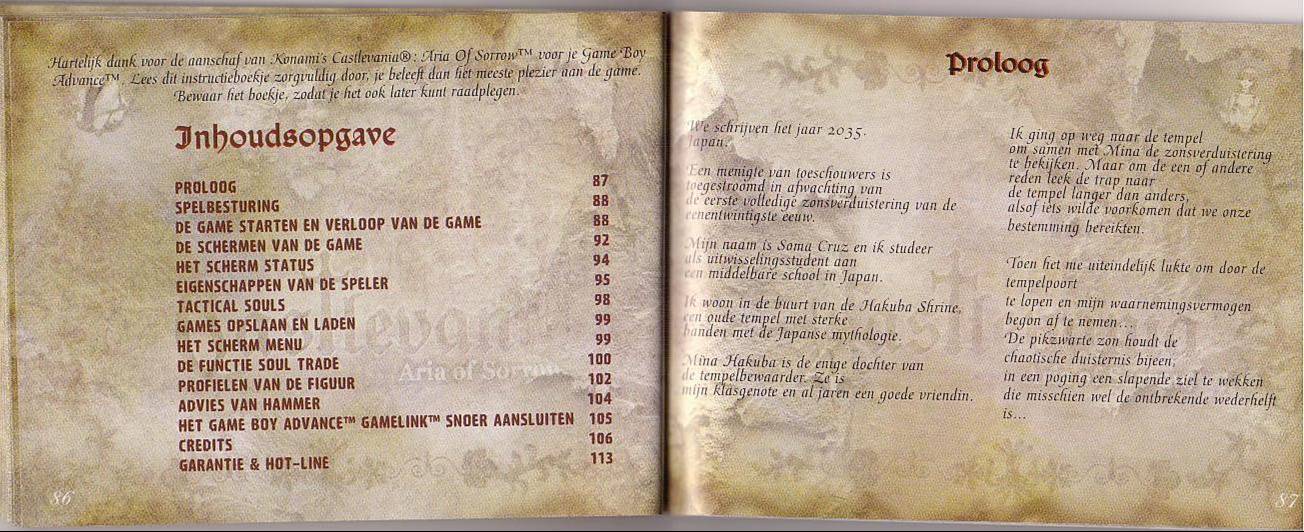 Hartelijk dank voor de aanschaf van Konami's Castlevania®: Aria Of Sorrow™ voor je Game Boy
Advance™. Lees dit instructieboekje zorgvuldig door, je beleeft dan het meeste plezier aan de game.
Bewaar het boekje, zodat je het ook later kunt raadplegen.
Inhoudsopgave
PROLOOG 87
SPELBESTURING 88
DE GAME STARTEN EN VERLOOP VAN DE GAME 88
DE SCHERMEN VAN DE GAME 92
HET SCHERM STATUS 94
EIGENSCHAPPEN VAN DE SPELER 95
TACTICAL SOULS 98
GAMES OPSLAAN EN LADEN 99
HET SCHERM MENU 99
DE FUNCTIE SOUL TRADE 100
PROFIELEN VAN DE FIGUUR 102
ADVIES VAN HAMMER 104
HET GAME BOY ADVANCE™ GAMELINK™ SNOER AANSLUITEN 105
CREDITS 106
GARANTIE & HOT-LINE 113
Aria of Sorrow
86
Proloog
We schrijven het jaar 2035.
Japan.
Een menigte van toeschouwers is
toegestroomd in afwachting van
de eerste volledige zonsverduistering van de
eenentwintigste eeuw.
Mijn naam is Soma Cruz en ik studeer
als uitwisselingsstudent aan
een middelbare school in Japan.
Ik woon in de buurt van de Hakuba Shrine,
een oude tempel met sterke
banden met de Japanse mythologie.
Mina Hakuba is de enige dochter van
de tempelbewaarder. Ze is
mijn klasgenote en al jaren een goede vriendin.
Ik ging op weg naar de tempel
om samen met Mina de zonsverduistering
te bekijken. Maar om de een of andere
reden leek de trap naar
de tempel langer dan anders,
alsof iets wilde voorkomen dat we onze
bestemming bereikten.
Toen het me uiteindelijk lukte om door de
tempelpoort
te lopen en mijn waarnemingsvermogen
begon af te nemen...
De pikzwarte zon houdt de
chaotische duisternis bijeen,
in een poging een slapende ziel te wekken
die misschien wel de ontbrekende wederhelft
is...
87